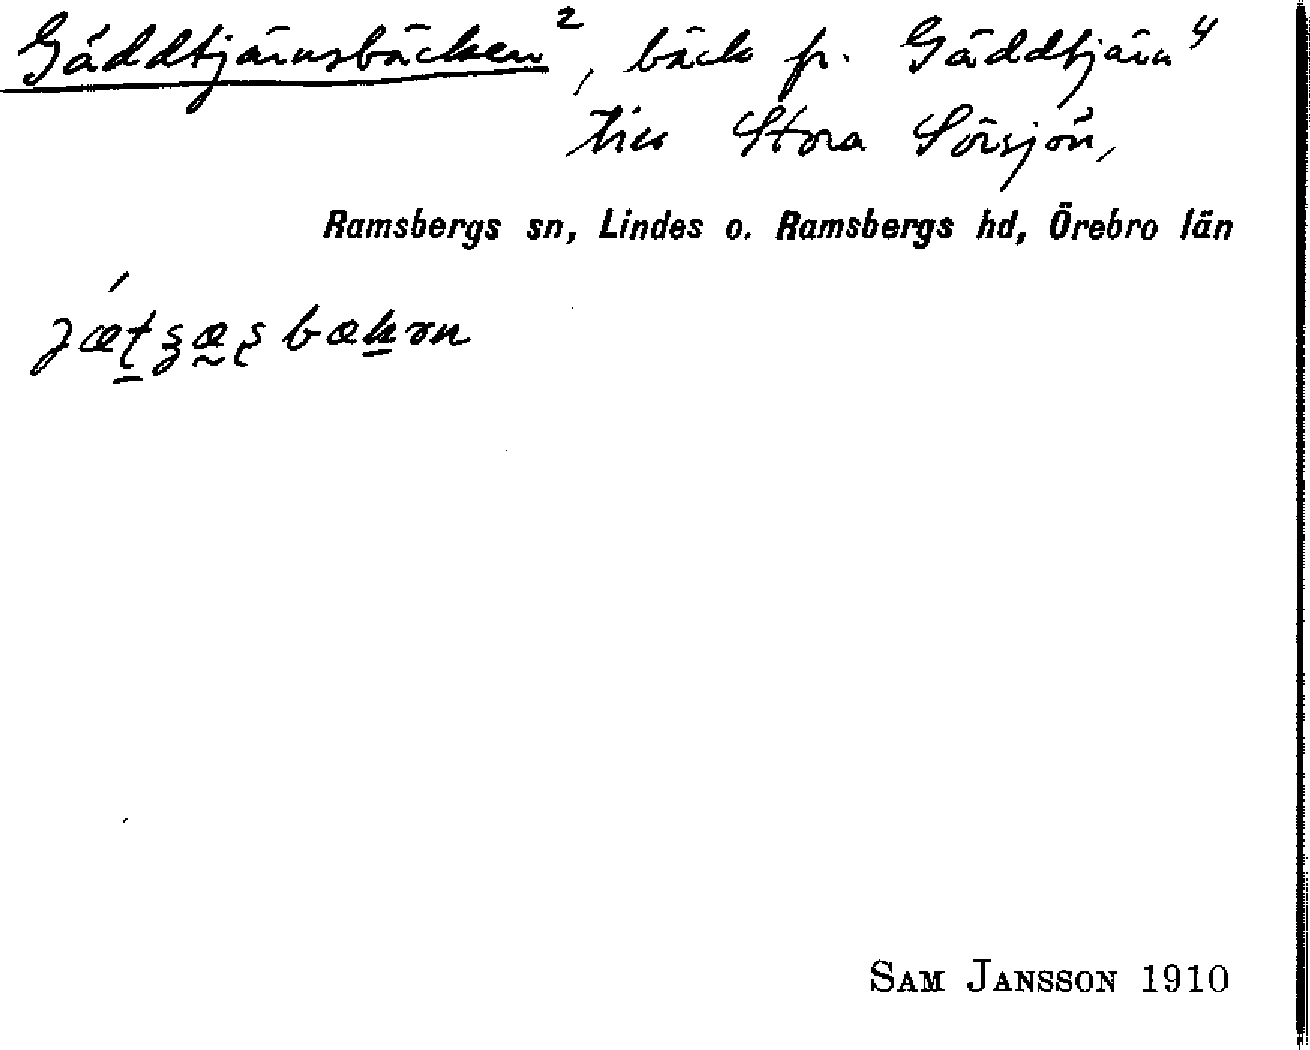 Gäddtjärnsbäcken², bäck fr. Gäddtjärn⁴
till Stora Sörsjön,
Ramsbergs sn, Lindes o. Ramsbergs hd, Örebro län
SAM JANSSON 1910